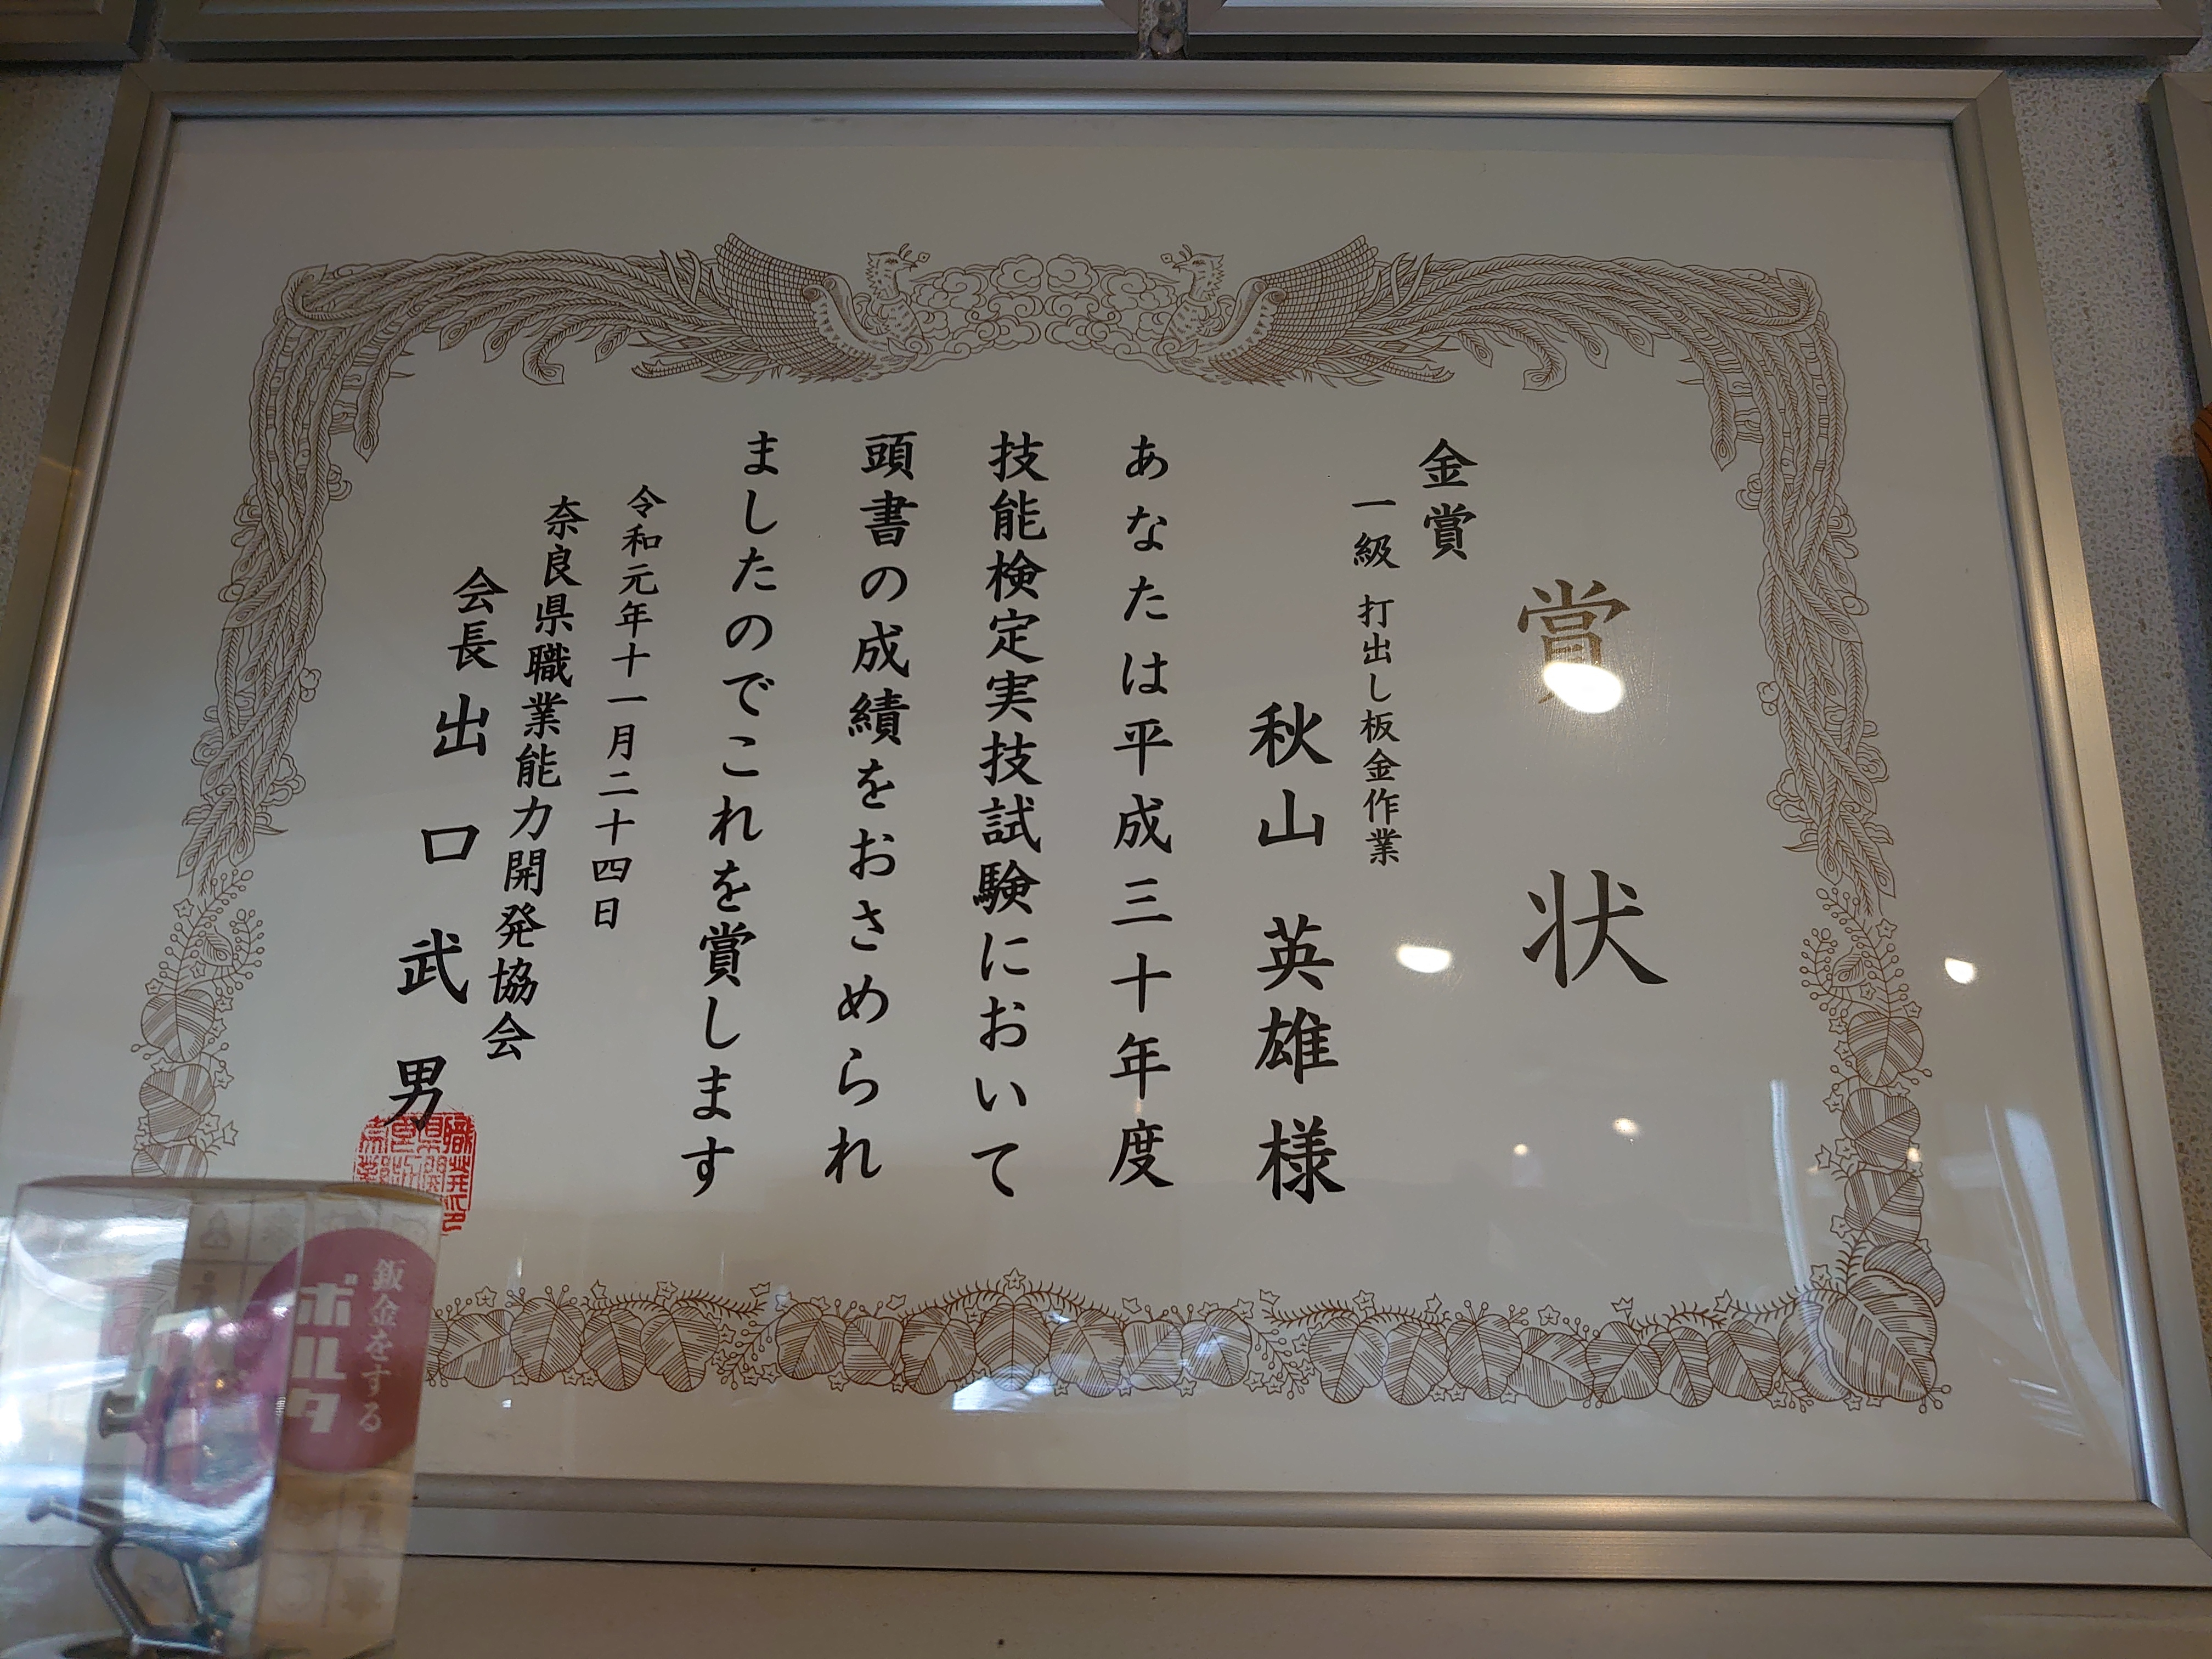 賞状
金賞
一級 打出し板金作業
秋山 英雄 様
あなたは平成三十年度
技能検定実技試験において
頭書の成績をおさめられ
ましたのでこれを賞します
令和元年十一月二十四日
奈良県職業能力開発協会
会長 出口武男
鈑金をする
ボルタ